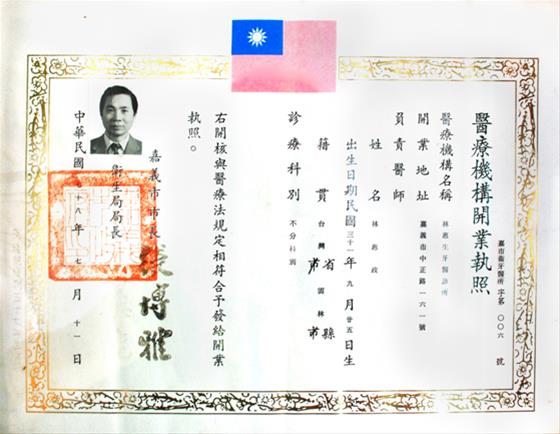 醫療機構開業執照
嘉市衛牙醫所字第〇〇六號
醫療機構名稱 林惠生牙醫診所
開業地址 嘉義市中正路一六一號
負責醫師
姓名 林惠政
出生日期民國三十一年九月廿五日生
籍貫 台灣省市雲林縣市
診療科別 不分科別
右開核與醫療法規定相符合予發給開業
執照。
嘉義市市長 張博雅
衛生局局長
中華民國七十八年 七月 十一日